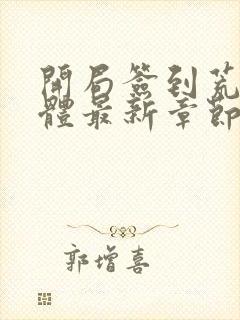 開局簽到荒
體最新章節
郭增喜